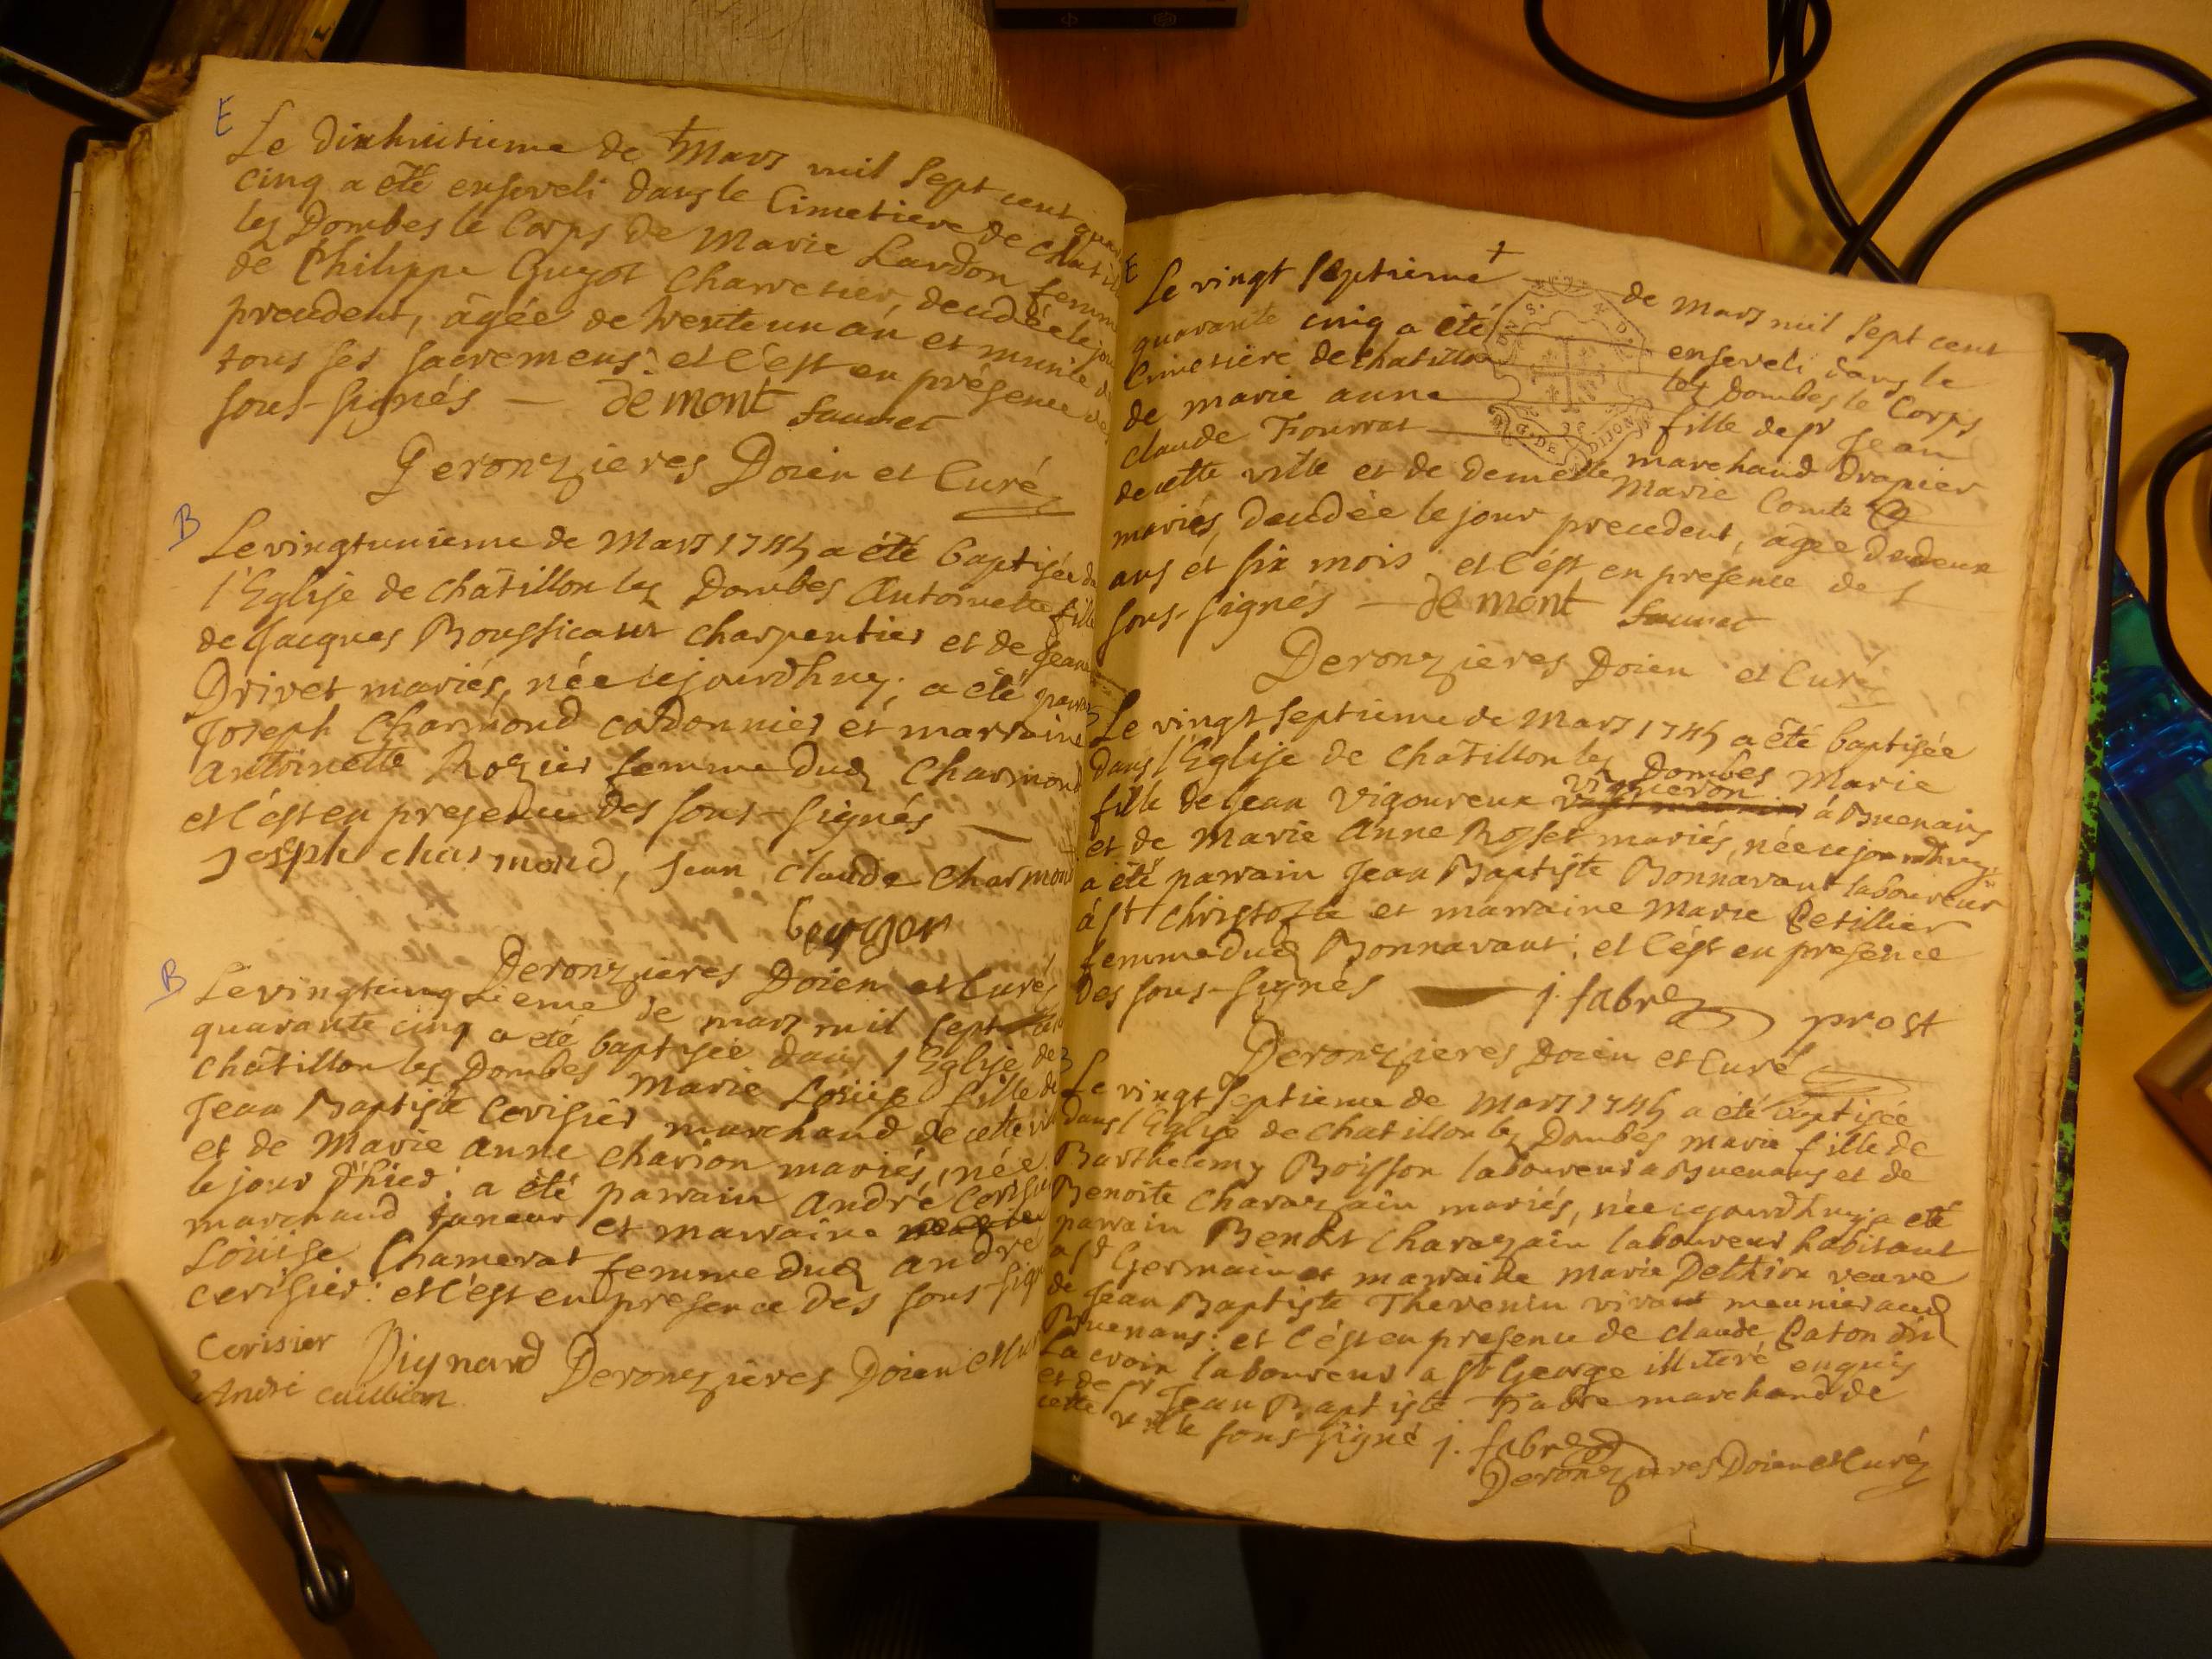 E
Le dixhuitieme de Mars mil sept cent quar
cinq a été enseveli dans le Cimetiere de Chatill
les Dombes le Corps de Marie Lardon femme
de Philippe Guyot Charretier, decedée le jour
precedent, âgée de trente un an et munie de
tous ses sacremens: et c'est en présence des
sous-signés — demont Sauvet
Deronzieres Doien et Curé
B
Le vingtunieme de Mars 1745 a été baptisée da
l'Eglise de Châtillon les Dombes Antoinette fille
de Jacques Boussicaut charpentier et de Jeanne
Drivet mariés, née cejourdhuy; a été parrain
Joseph Charmond cordonnier et marraine
antoinette Rozier femme dud Charmond
et c'est en presence des sous-signés —
Joseph charmond, Jean Claude Charmond
Deronzieres Doien et Curé
B
Le vingtcinqzieme de mars mil sept
quarante cinq a été baptisée dans l'Eglise de
châtillon les Dombes Marie Loüise fille de
Jean Baptiste Cerisier marchand de cette vil
et de Marie anne charion mariés, née
le jour d'hier: a été parrain André Cerisier
marchand taneur et marraine
Loüise Chamerat femme dud andré
cerisier: et c'est en presence des sous-sign
Cerisier Dignard Deronzières Doien et Cu
André
E
Le vingt septieme de mars mil sept cent
quarante cinq a été enseveli dans le
Cimetière de chatillon les Dombes le Corps
de marie anne fille de sr Jean
claude Fourrat marchand Drapier
de cette ville et de demelle Marie Comte
mariés, decedée le jour precedent, âgée de deux
ans et six mois: et c'est en presence des
sous-signés — demont Sauvet
Deronzieres Doien et Curé
B
Le vingt septieme de Mars 1745 a été baptisée
dans l'Eglise de Châtillon les Dombes Marie
fille de Jean Vigoureux vigneron à Buenans
et de Marie Anne Rosset mariés, née cejourdhuy:
a été parrain Jean Baptiste Bonnavant laboureur
à st Christofle et marraine Marie Petillier
femme dud Bonnavant: et c'est en presence
des sous-signés — j. fabre prost
Deronzieres Doien et Curé
B
Le vingt septieme de Mars 1745 a été baptisée
dans l'Eglise de chatillon les Dombes marie fille de
Barthelemy Boisson laboureur a Buenans et de
Benoite Charazain mariés, née cejourdhuy a été
parrain Benoit Charazain laboureur habitant
a st Germain et marraine marie Delthion veuve
de Jean Baptiste Thevenin vivant meunier aud
Buenans: et c'est en presence de claude Caton dit
La croix laboureur a st George illiteré enquis
et de sr Jean Baptiste Fabre marchand de
cette ville sous-signé j. fabre
Deronzieres Doien et Curé